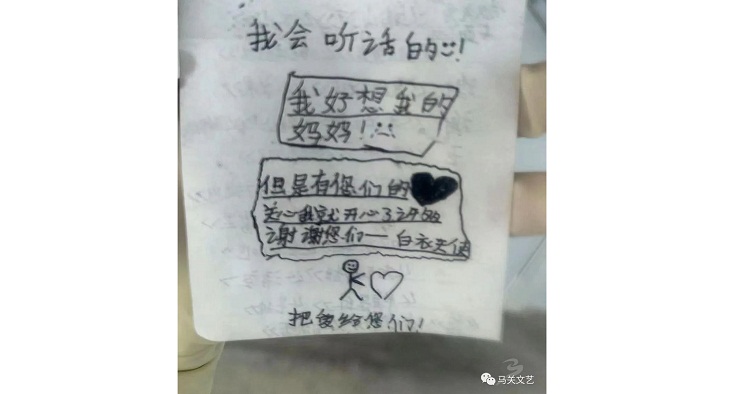 我会听话的!
我好想我的
妈妈!
但是有您们的
关心我就开心了许多
谢谢您们——白衣天使
把爱给您们!
马关文艺